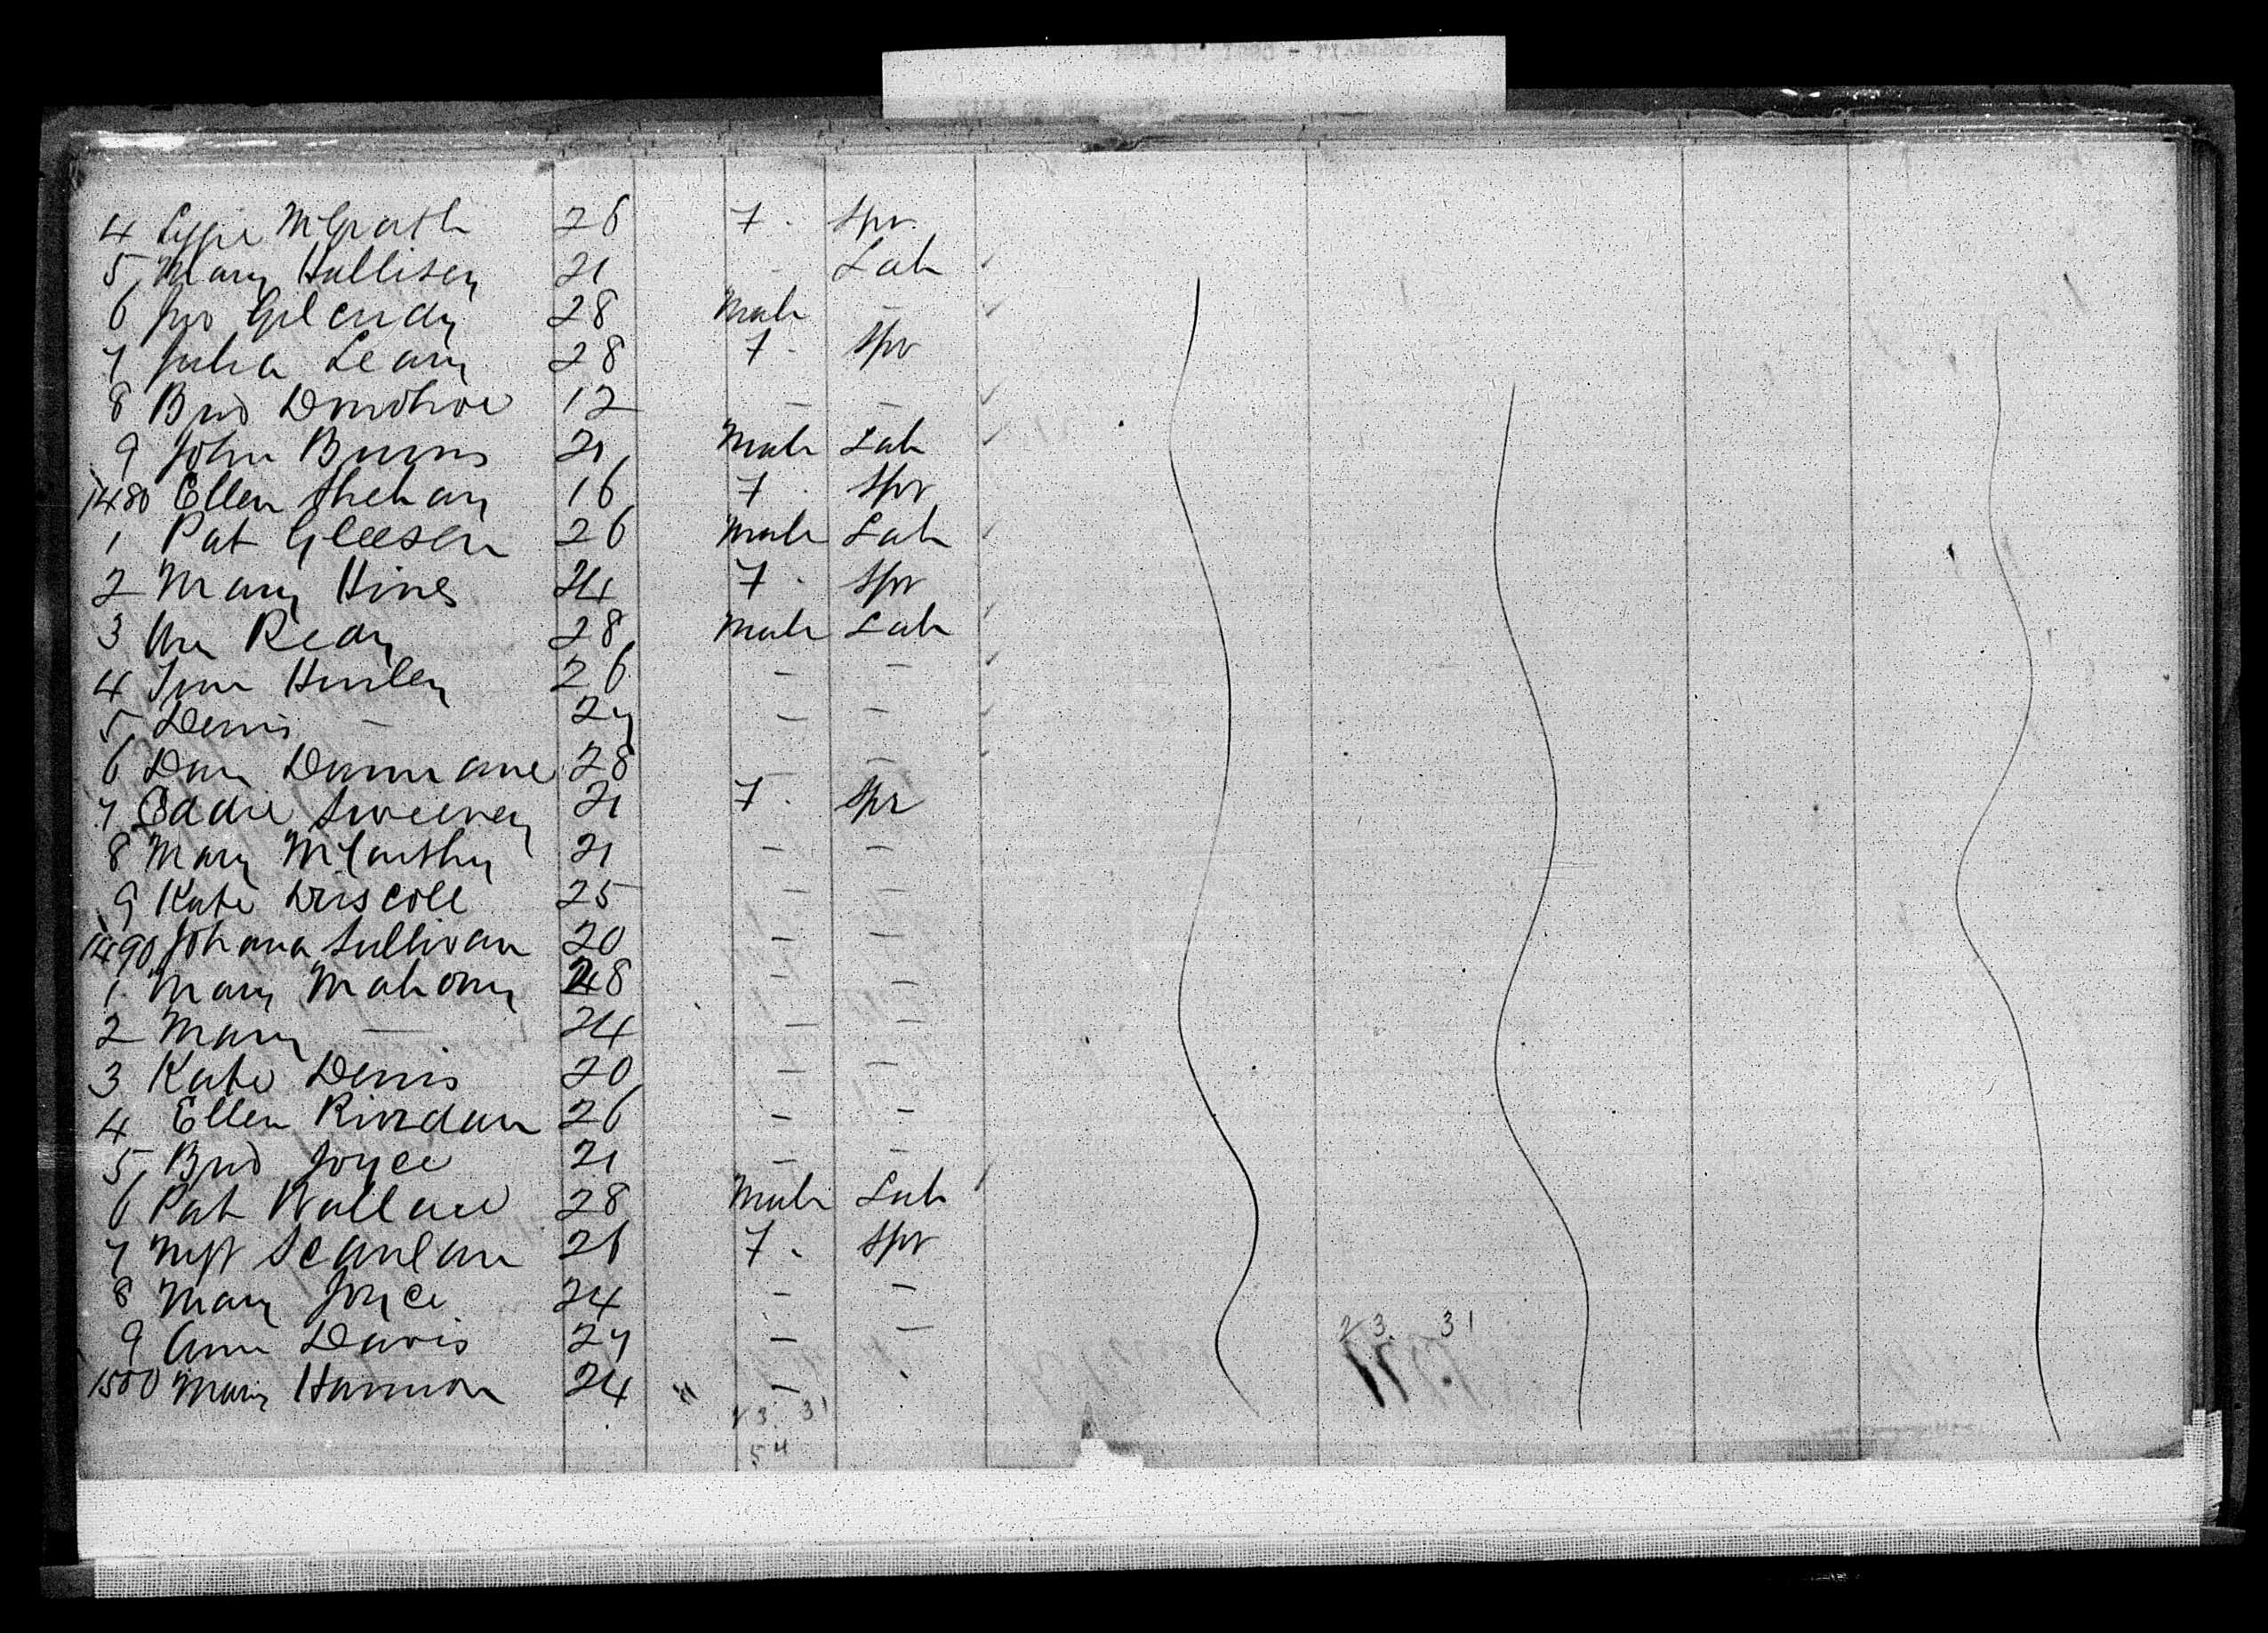 4 Lizzie McGrath 26 F. Spr.
5 Mary Hallisey 21 - Lab
6 Jno Gilendy 28 Male -
7 Julia Leary 28 F. Spr
8 Brid Donohoe 12 - -
9 John Burns 21 Male Lab
1480 Ellen Shehan 16 F. Spr
1 Pat Gleesen 26 Male Lab
2 Mary Hines 24 F. Spr
3 Reidy 28 Male Lab
4 Tim Hurley 26 - -
5 Denis - 27 - -
6 Dan 28 - -
7 Eddie Sweeney 21 F. Spr
8 Mary McCarthy 21 - -
9 Kate Driscoll 25 - -
1490 Johana Sullivan 20 - -
1 Mary Mahony 28 - -
2 Mary - 24 - -
3 Kate Denis 20 - -
4 Ellen Riordan 26 - -
5 Brid Joyce 21 - -
6 Pat Wallace 28 Male Lab
7 Mgt Scanlan 26 F. Spr
8 Mary Joyce 24 - -
9 Ann Davis 27 - -
1500 Mary Hannon 24 " -
23 31
23 31
54